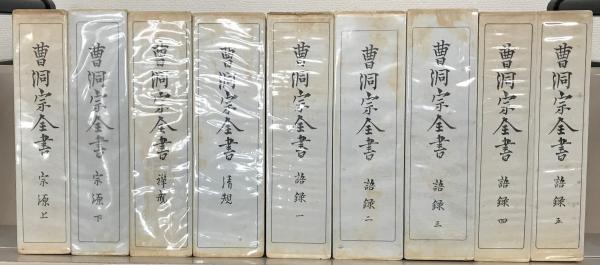 曹洞宗全書 宗源上
曹洞宗全書 宗源下
曹洞宗全書 禅戒
曹洞宗全書 清規
曹洞宗全書 語録一
曹洞宗全書 語録二
曹洞宗全書 語録三
曹洞宗全書 語録四
曹洞宗全書 語録五